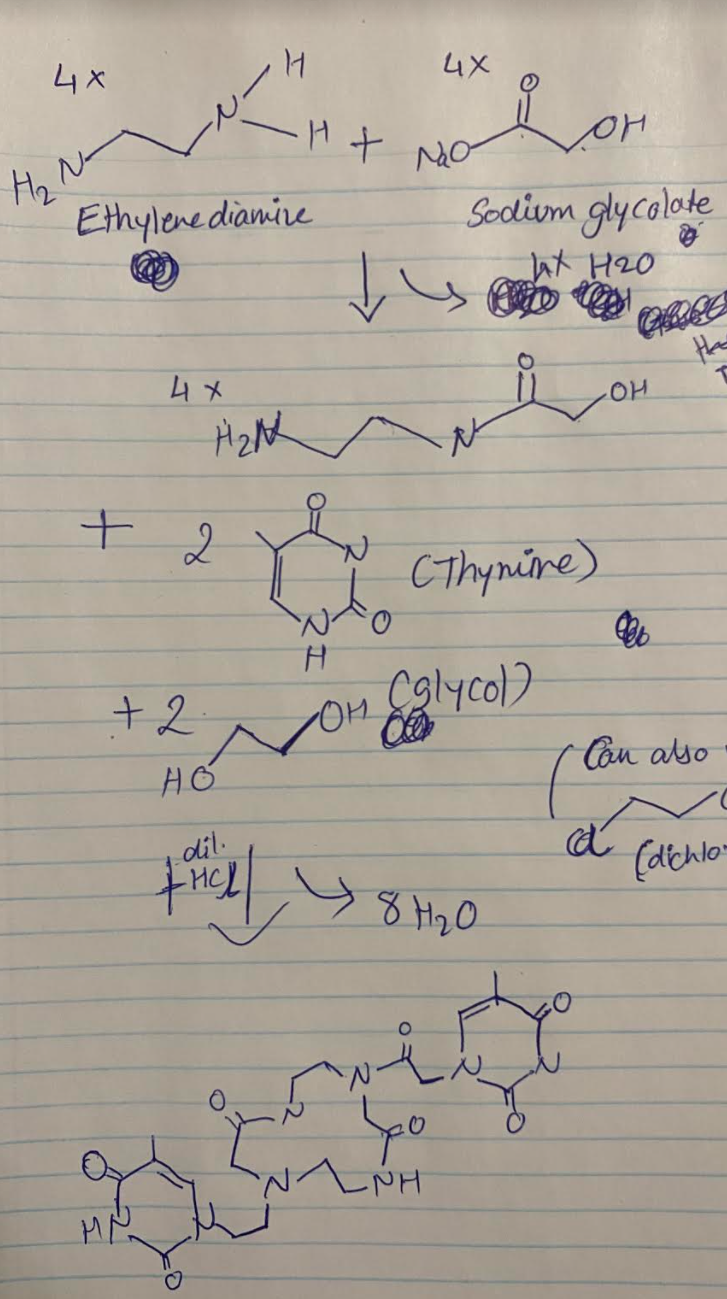 4x 4x
H
N O
H + NaO OH
H2N
Ethylenediamine Sodium glycolate
4x H2O
4x O
H2N N OH
+ 2 O
N (Thymine)
N O
H
+ 2 OH (glycol)
HO
(Can also
Cl
(dichlo
+ dil. HCl
8 H2O
O
O N N N
O N O O
O N NH
HN N
O